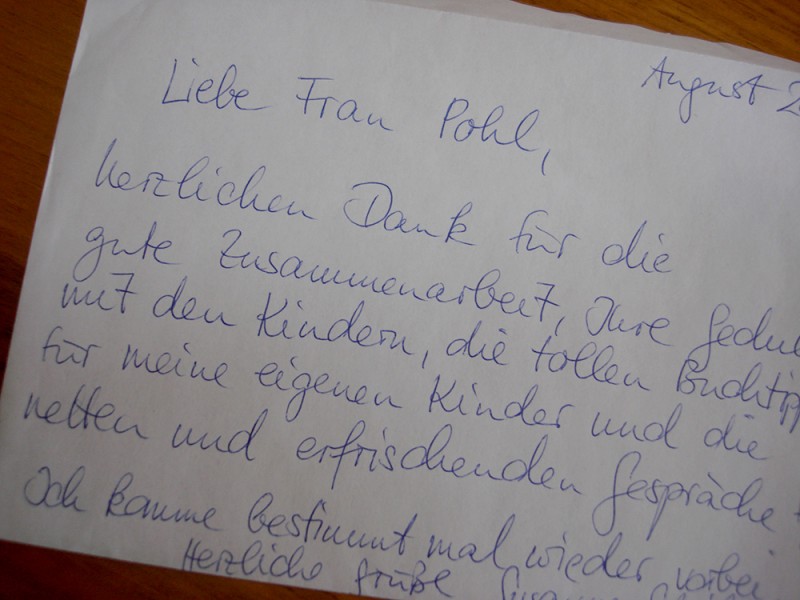 August 2
Liebe Frau Pohl,
herzlichen Dank für die
gute Zusammenarbeit, Ihre Gedul
mit den Kindern, die tollen Buchtipp
für meine eigenen Kinder und die
netten und erfrischenden Gespräche
Ich komme bestimmt mal wieder vorbei
Herzliche Grüße